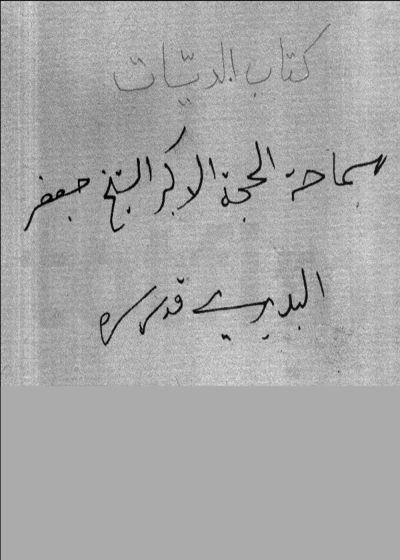 كتاب الديات
سماحة الحجة الاكبر الشيخ جعفر
البديري قدس سره